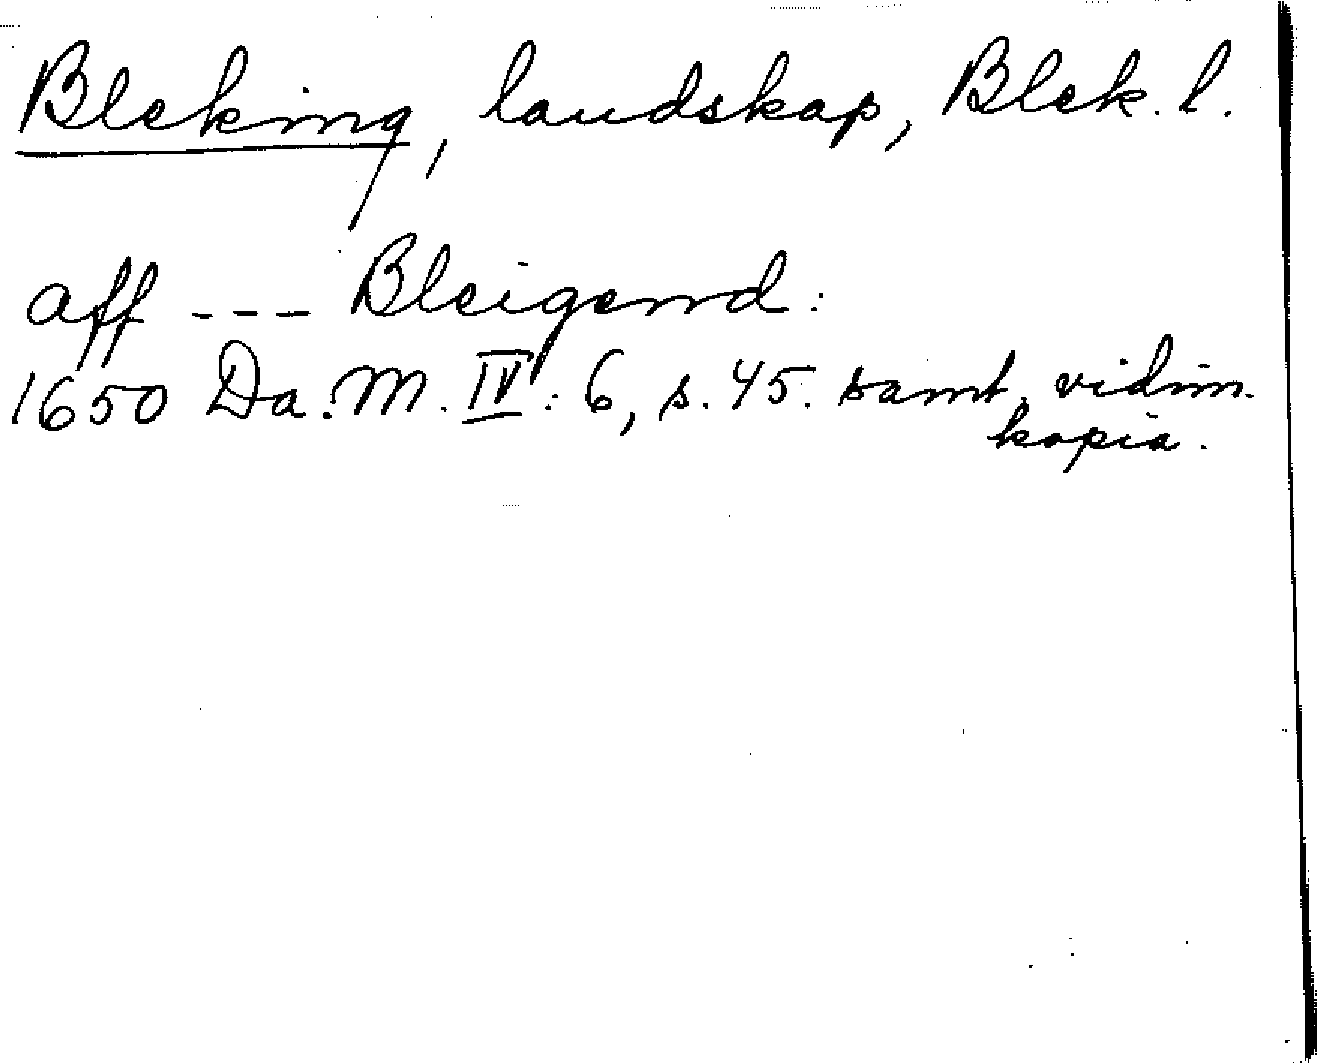 Bleking, landskap, Blek. l.
aff --- Bleigend:
1650 Da. M. IV: 6, s. 45. samt. vidim.
kopia.